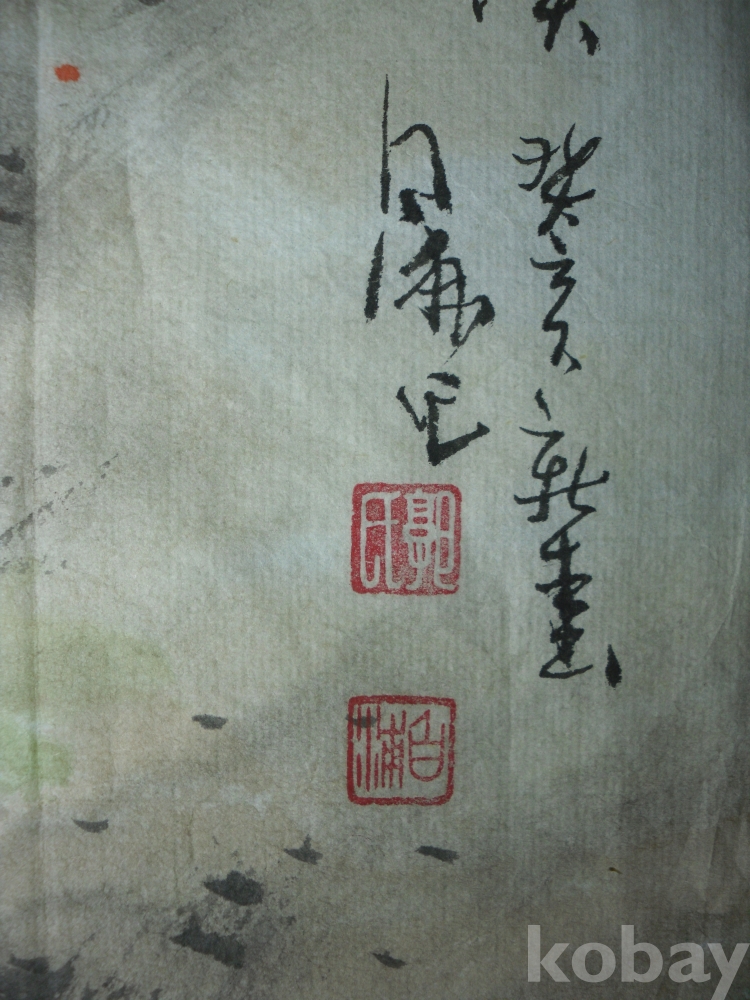 癸亥新
白浦
郭氏
白浦
kobay